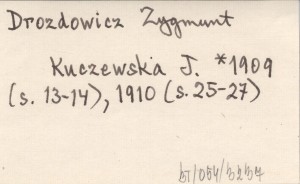 Drozdowicz Zygmunt
Kuczewska J. *1909
(s. 13-14), 1910 (s. 25-27)